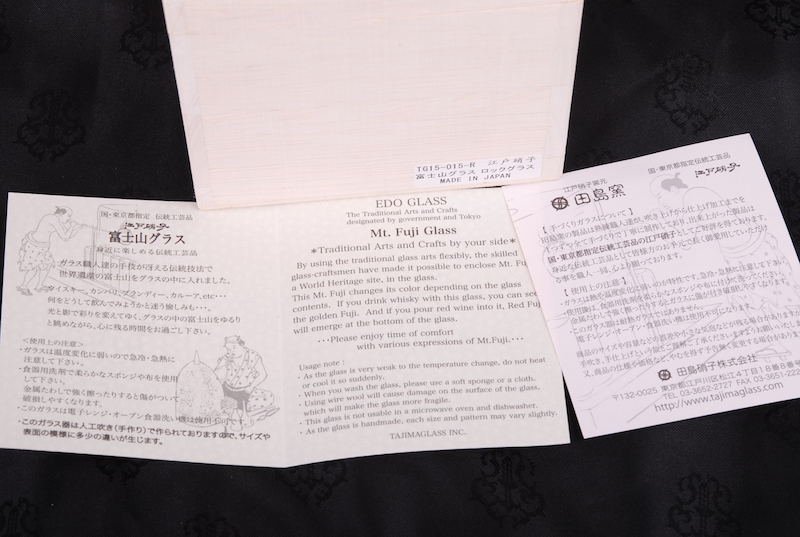 TG15-015-R 江戸硝子
富士山グラス ロックグラス
MADE IN JAPAN
国・東京都指定 伝統工芸品
江戸硝子
富士山グラス
身近に楽しめる伝統工芸品
ガラス職人達の手技が冴える伝統技法で
世界遺産の富士山をグラスの中に入れました。
ウイスキー、カンパリ、ブランディー、カルーア、etc・・・
何をどうして飲んでみようかと迷う愉しみも・・・。
光と影で彩りを変えてゆく、グラスの中の富士山をゆるり
と眺めながら、心に残る時間をお過ごし下さい。
<使用上の注意>
・ガラスは温度変化に弱いので急冷・急熱に
注意して下さい。
・食器用洗剤で柔らかなスポンジや布を使用
して下さい。
金属たわしで強く擦ったりすると傷がついて
破損しやすくなります。
・このガラスは電子レンジ・オーブン食器洗い機は使用不可です。
・このガラス器は人工吹き(手作り)で作られておりますので、サイズや
表面の模様に多少の違いが生じます。
EDO GLASS
The Traditional Arts and Crafts
designated by government and Tokyo
Mt. Fuji Glass
*Traditional Arts and Crafts by your side*
By using the traditional glass arts flexibly, the skilled
glass-craftsmen have made it possible to enclose Mt. Fuji,
a World Heritage site, in the glass.
This Mt. Fuji changes its color depending on the glass
contents. If you drink whisky with this glass, you can see
the golden Fuji. And if you pour red wine into it, Red Fuji
will emerge at the bottom of the glass.
・・・Please enjoy time of comfort
with various expressions of Mt.Fuji.・・・
Usage note :
・As the glass is very weak to the temperature change, do not heat
or cool it so suddenly.
・When you wash the glass, please use a soft sponge or a cloth.
・Using wire wool will cause damage on the surface of the glass,
which will make the glass more fragile.
・This glass is not usable in a microwave oven and dishwasher.
・As the glass is handmade, each size and pattern may vary slightly.
TAJIMAGLASS INC.
江戸硝子窯元
田島窯
国・東京都指定伝統工芸品
江戸硝子
【手づくりガラスについて】
田島窯の製品は熟練職人達が吹き上げから仕上げ加工までを
一つずつ全て手づくりで丁寧に制作しています。出来上がった製品は
国・東京都指定伝統工芸品の江戸硝子としてご好評を得ております。
身近な伝統工芸品として皆様方のお手元で長く御愛用していただけ
る事を職人一同、心より願っております。
【使用上の注意】
田島硝子株式会社
〒132-0025 東京都江戸川区松江4丁目18番8号
TEL 03-3652-2727 FAX 03-3651-1222
http://www.tajimaglass.com